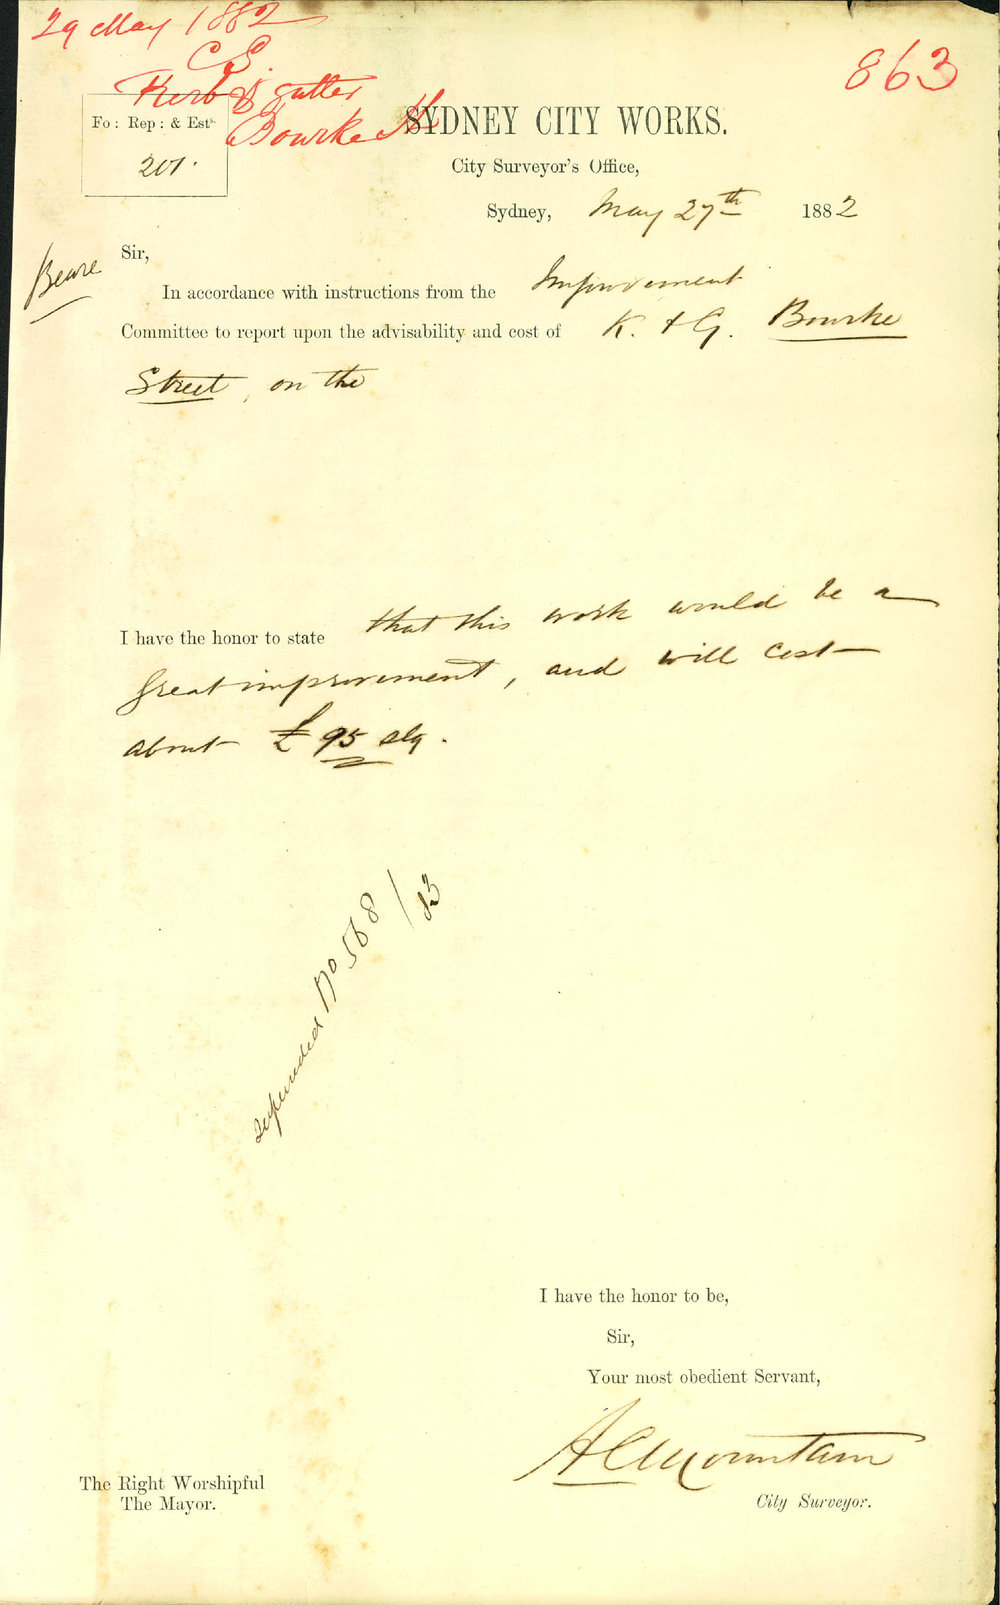 29 May 1882
C.S.
863
Kerb & gutter
Bourke St
SYDNEY CITY WORKS.
Fo: Rep: & Ests.
201.
City Surveyor's Office,
Sydney, May 27th 1882
Beare
Sir,
In accordance with instructions from the Improvement
Committee to report upon the advisability and cost of K. & G. Bourke
Street, on the
I have the honor to state that this work would be a
great improvement, and will cost
about £95 stg.
No 568/83
I have the honor to be,
Sir,
Your most obedient Servant,
A C Mountain
City Surveyor.
The Right Worshipful
The Mayor.